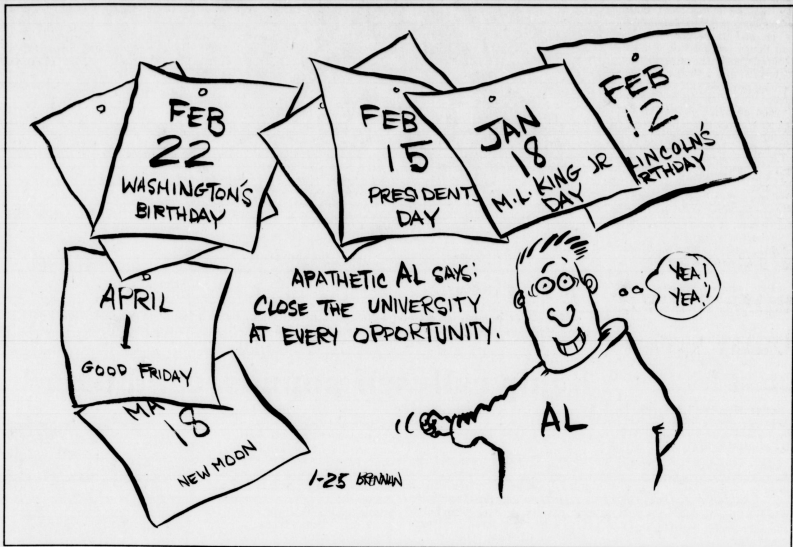 FEB
22
WASHINGTON'S
BIRTHDAY
FEB
15
PRESIDENTS
DAY
JAN
18
M.L. KING JR
DAY
FEB
12
LINCOLN'S
RTHDAY
APRIL
1
GOOD FRIDAY
MA
18
NEW MOON
APATHETIC AL SAYS:
CLOSE THE UNIVERSITY
AT EVERY OPPORTUNITY.
YEA!
YEA!
AL
1-25 BRENNAN